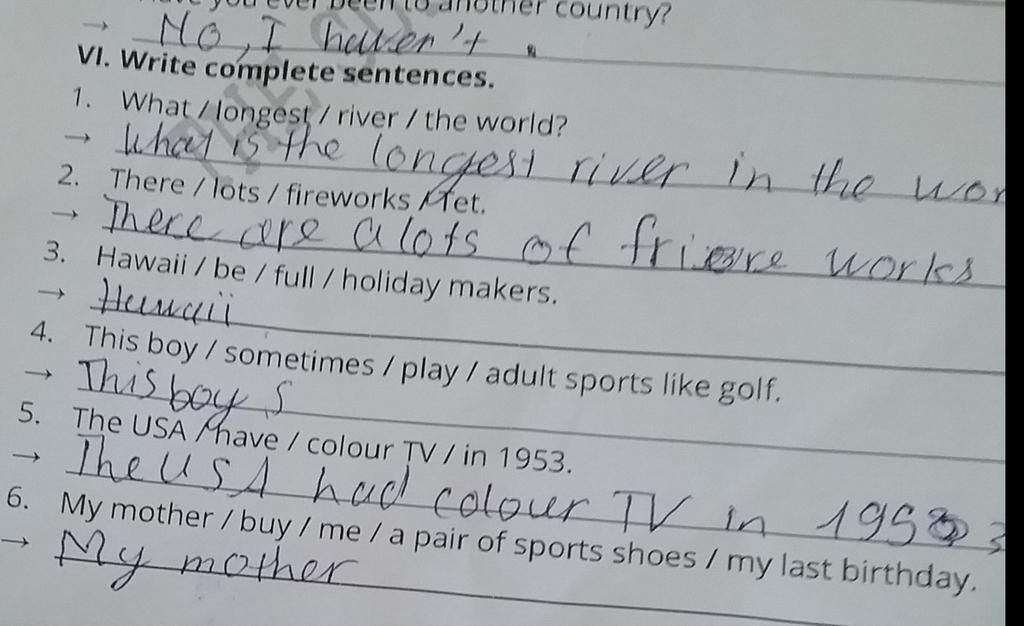 you ever been to another country?
→ No, I haven't.
VI. Write complete sentences.
1. What / longest / river / the world?
→ What is the longest river in the wor
2. There / lots / fireworks / Tet.
→ There are a lots of works
3. Hawaii / be / full / holiday makers.
→ Hawaii
4. This boy / sometimes / play / adult sports like golf.
→ This boy s
5. The USA / have / colour TV / in 1953.
→ The USA had colour TV in 1953
6. My mother / buy / me / a pair of sports shoes / my last birthday.
→ My mother